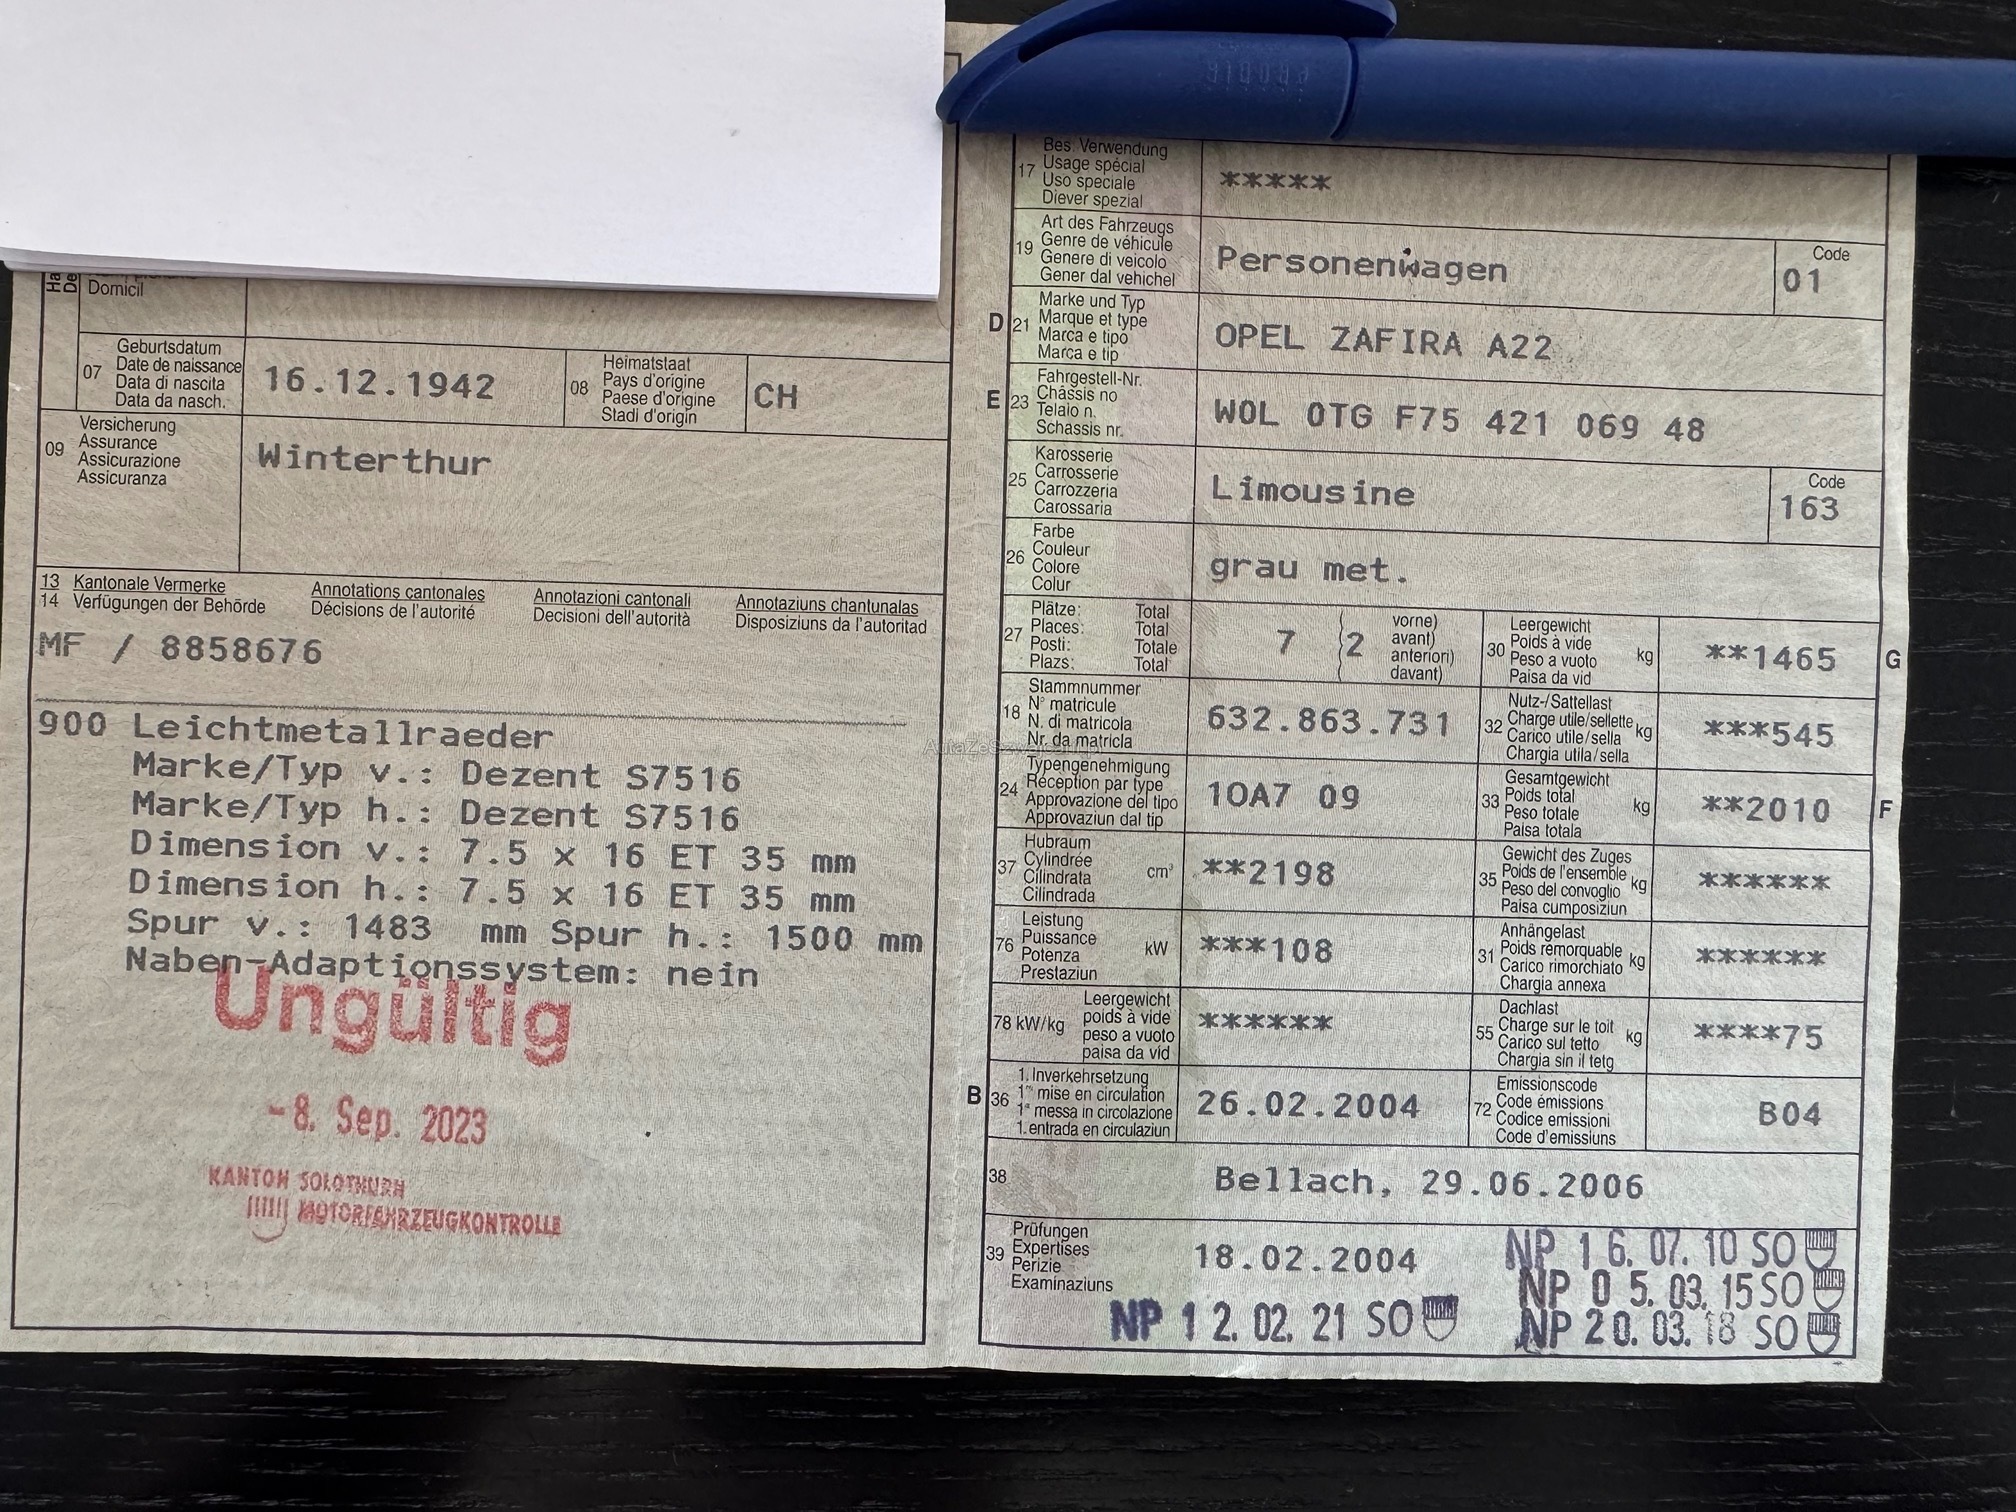 Domicil
07
Geburtsdatum
Date de naissance
Data di nascita
Data da nasch.
16.12.1942
08
Heimatstaat
Pays d'origine
Paese d'origine
Stadi d'origin
CH
09
Versicherung
Assurance
Assicurazione
Assicuranza
Winterthur
13 Kantonale Vermerke Annotations cantonales Annotazioni cantonali Annotaziuns chantunalas
14 Verfügungen der Behörde Décisions de l'autorité Decisioni dell'autorità Disposiziuns da l'autoritad
MF / 8858676
900 Leichtmetallraeder
Marke/Typ v.: Dezent S7516
Marke/Typ h.: Dezent S7516
Dimension v.: 7.5 x 16 ET 35 mm
Dimension h.: 7.5 x 16 ET 35 mm
Spur v.: 1483 mm Spur h.: 1500 mm
Naben-Adaptionssystem: nein
Ungültig
-8. Sep. 2023
KANTON SOLOTHURN
MOTORFAHRZEUGKONTROLLE
17
Bes. Verwendung
Usage spécial
Uso speciale
Diever spezial
*****
19
Art des Fahrzeugs
Genre de véhicule
Genere di veicolo
Gener dal vehichel
Personenwagen
Code
01
D 21
Marke und Typ
Marque et type
Marca e tipo
Marca e tip
OPEL ZAFIRA A22
E 23
Fahrgestell-Nr.
Châssis no
Telaio n.
Schassis nr.
W0L 0TG F75 421 069 48
25
Karosserie
Carrosserie
Carrozzeria
Carossaria
Limousine
Code
163
26
Farbe
Couleur
Colore
Colur
grau met.
27
Plätze: Total
Places: Total
Posti: Totale
Plazs: Total
7 ( 2
vorne)
avant)
anteriori)
davant)
30
Leergewicht
Poids à vide
Peso a vuoto
Paisa da vid
kg
**1465
G
18
Stammnummer
N° matricule
N. di matricola
Nr. da matricla
632.863.731
32
Nutz-/Sattellast
Charge utile/sellette
Carico utile/sella
Chargia utila/sella
kg
***545
24
Typengenehmigung
Réception par type
Approvazione del tipo
Approvaziun dal tip
1OA7 09
33
Gesamtgewicht
Poids total
Peso totale
Paisa totala
kg
**2010
F
37
Hubraum
Cylindrée
Cilindrata
Cilindrada
cm³
**2198
35
Gewicht des Zuges
Poids de l'ensemble
Peso del convoglio
Paisa cumposiziun
kg
******
76
Leistung
Puissance
Potenza
Prestaziun
kW
***108
31
Anhängelast
Poids remorquable
Carico rimorchiato
Chargia annexa
kg
******
78 kW/kg
Leergewicht
poids à vide
peso a vuoto
paisa da vid
******
55
Dachlast
Charge sur le toit
Carico sul tetto
Chargia sin il tetg
kg
****75
B 36
1. Inverkehrsetzung
1re mise en circulation
1a messa in circolazione
1. entrada en circulaziun
26.02.2004
72
Emissionscode
Code émissions
Codice emissioni
Code d'emissiuns
B04
38
Bellach, 29.06.2006
39
Prüfungen
Expertises
Perizie
Examinaziuns
18.02.2004
NP 16. 07. 10 SO
NP 05. 03. 15 SO
NP 12. 02. 21 SO
NP 20. 03. 18 SO